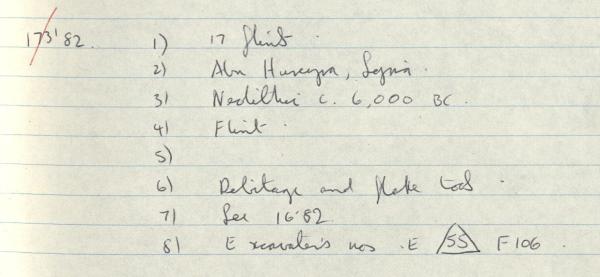 173'82. 1) 17 flint.
2) Abu Hureyra, Syria.
3) Neolithic c. 6,000 BC.
4) Flint.
5)
6) Debitage and flake tools.
7) See 16.82
8) Excavator's nos. E 55 F106.